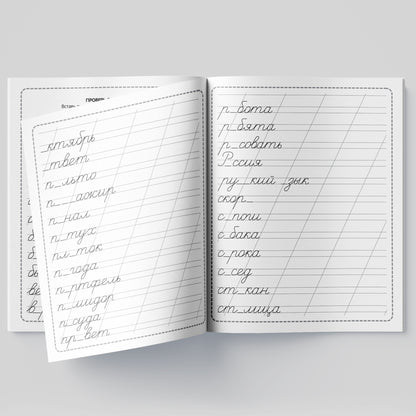 Вставь
_ктябрь
_твет
п_льто
п___ажир
п_нал
п_тух
пл_ток
п_года
п_ртфель
п_мидор
п_суда
пр_вет
р_бота
р_бята
р_совать
Р_ссия
ру_кий _зык
скор_
с_поги
с_бака
с_рока
с_сед
ст_кан
ст_лица